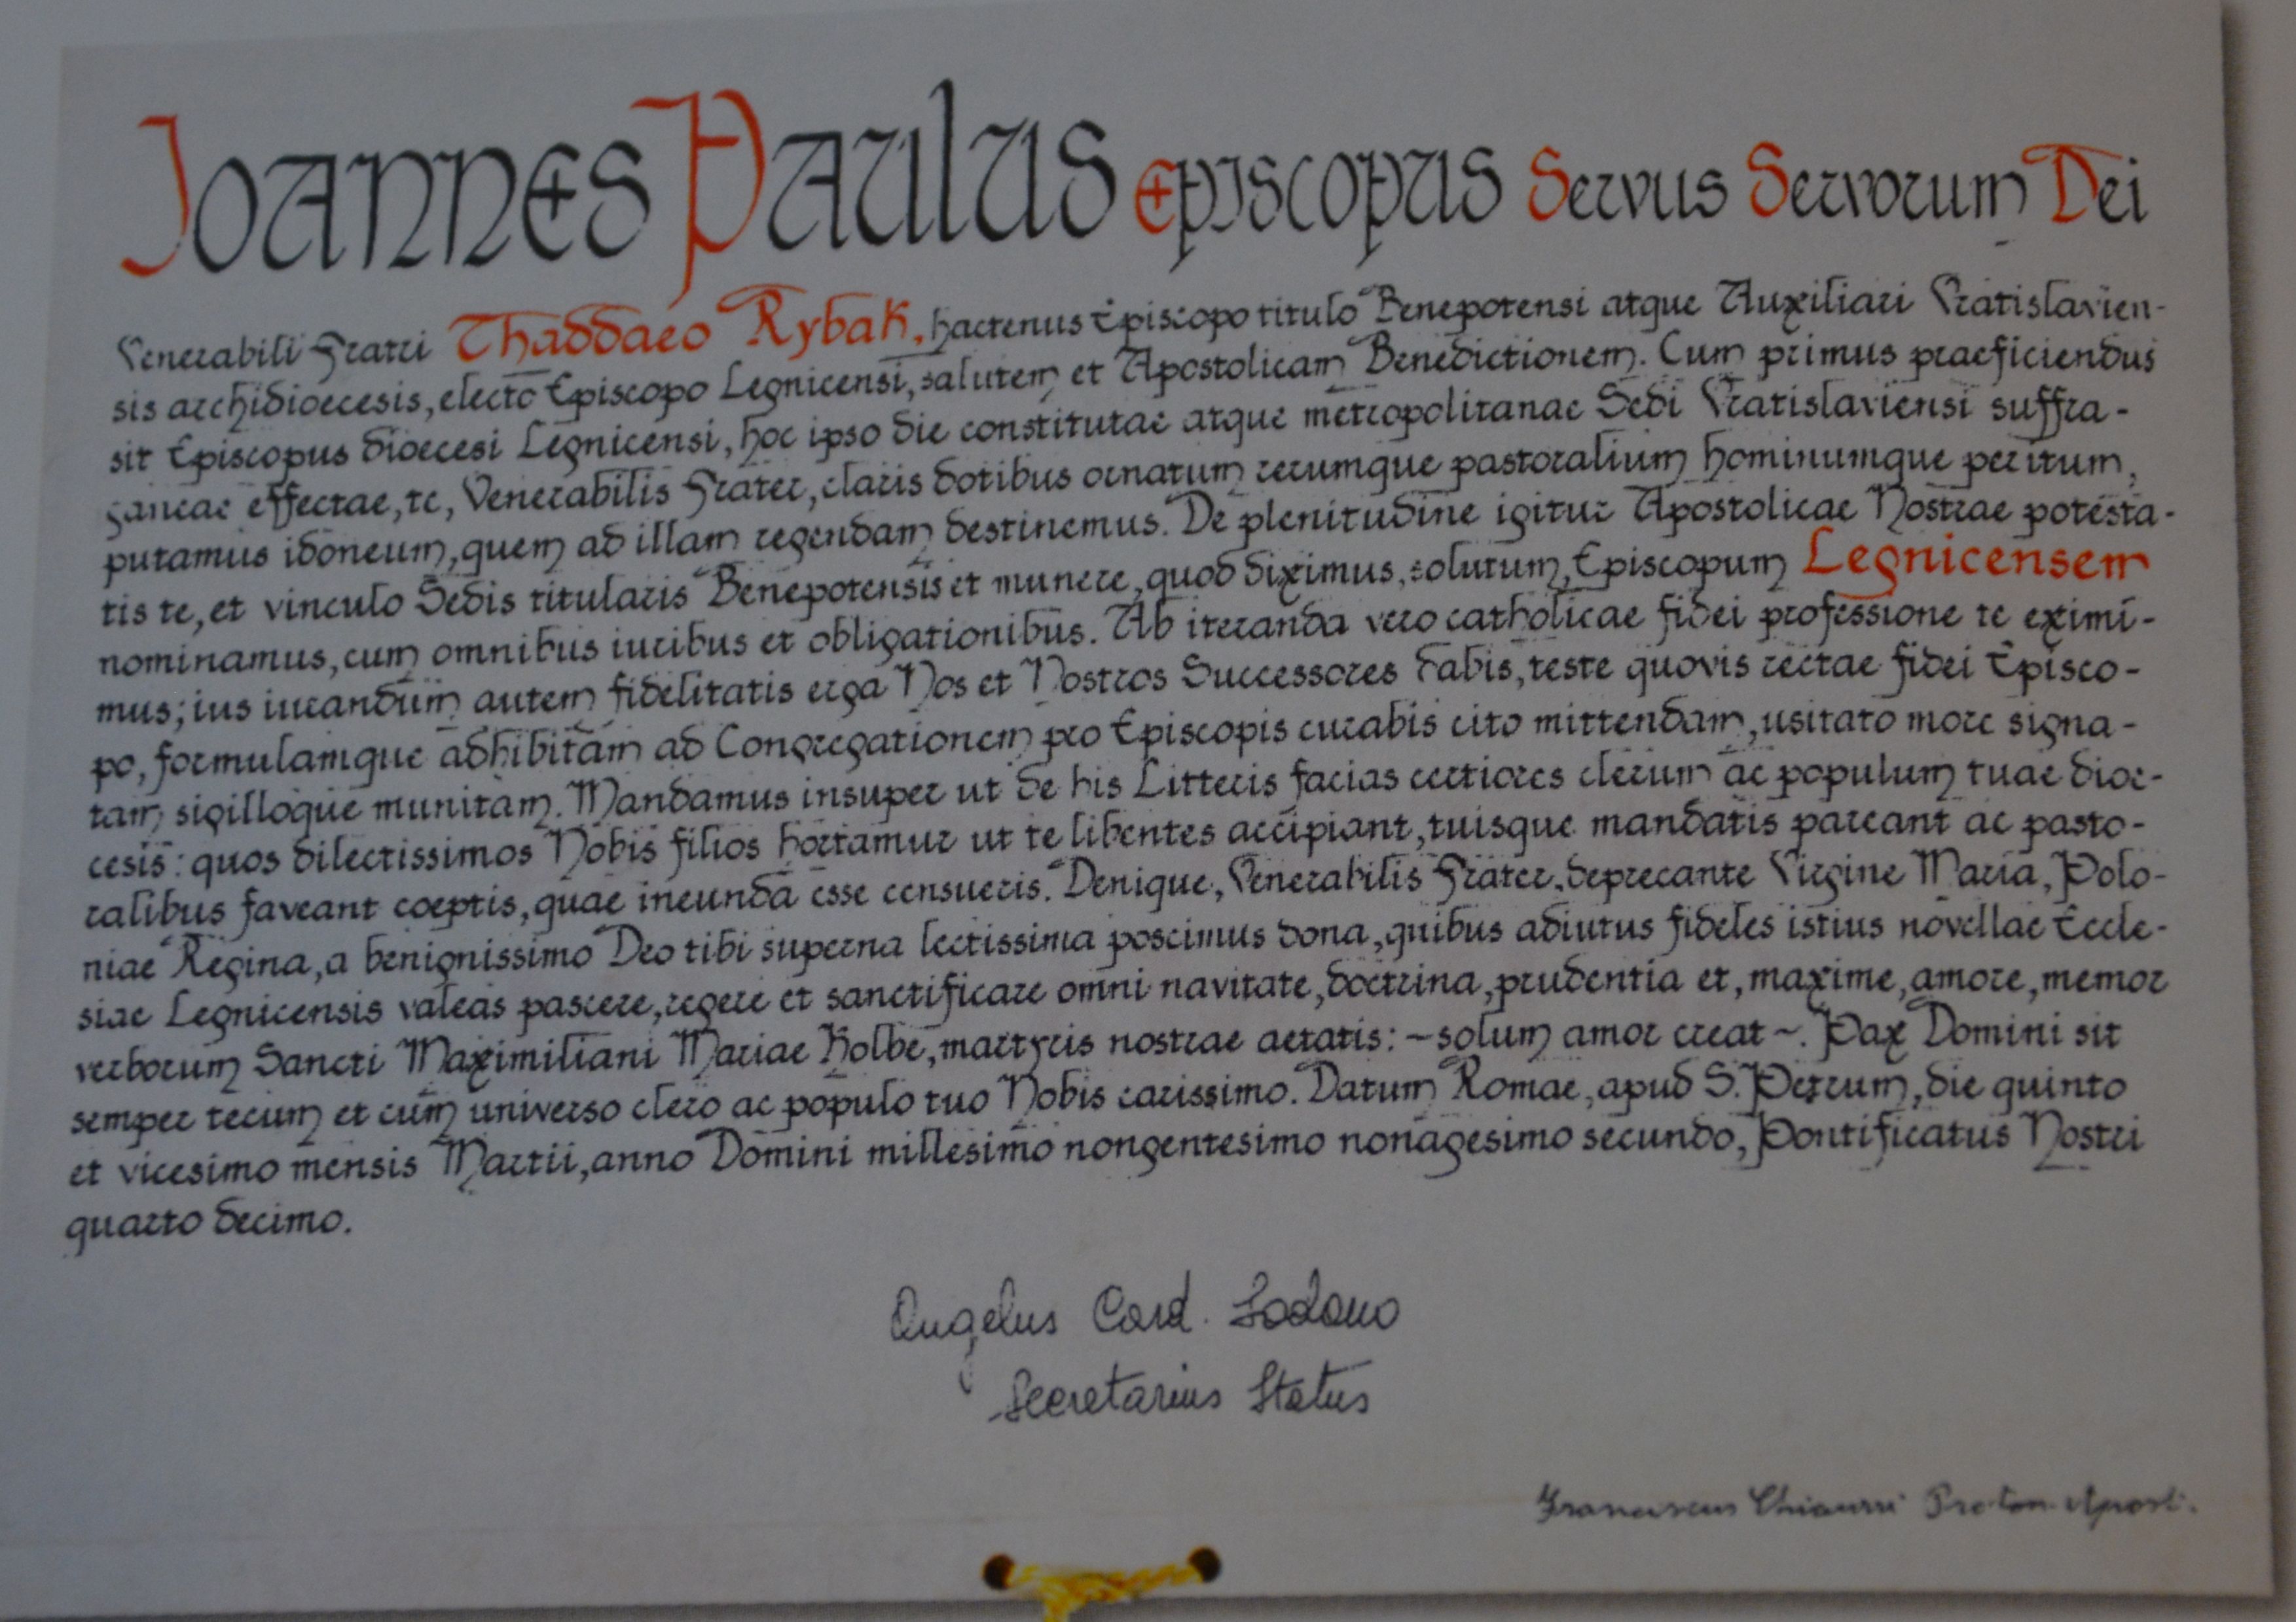 Joannes Paulus Episcopus Servus Servorum Dei
Venerabili Fratri Thaddaeo Rybak, hactenus Episcopo titulo Benepotensi atque Auxiliari Vratislavien-
sis archidioecesis, electo Episcopo Legnicensi, salutem et Apostolicam Benedictionem. Cum primus praeficiendus
sit Episcopus dioecesi Legnicensi, hoc ipso die constitutae atque metropolitanae Sedi Vratislaviensi suffra-
ganeae effectae, te, Venerabilis Frater, claris dotibus ornatum rerumque pastoralium hominumque peritum,
putamus idoneum, quem ad illam regendam destinemus. De plenitudine igitur Apostolicae Nostrae potesta-
tis te, et vinculo Sedis titularis Benepotensis et munere, quod diximus, solutum, Episcopum Legnicensem
nominamus, cum omnibus iuribus et obligationibus. Ab iteranda vero catholicae fidei professione te eximi-
mus; ius iurandum autem fidelitatis erga Nos et Nostros Successores dabis, teste quovis rectae fidei Episco-
po, formulamque adhibitam ad Congregationem pro Episcopis curabis cito mittendam, usitato more signa-
tam sigilloque munitam. Mandamus insuper ut de his Litteris facias certiores clerum ac populum tuae dioe-
cesis: quos dilectissimos Nobis filios hortamur ut te libentes accipiant, tuisque mandatis pareant ac pasto-
ralibus faveant coeptis, quae ineunda esse censueris. Denique, Venerabilis Frater, deprecante Virgine Maria, Polo-
niae Regina, a benignissimo Deo tibi superna lectissima poscimus dona, quibus adiutus fideles istius novellae Eccle-
siae Legnicensis valeas pascere, regere et sanctificare omni navitate, doctrina, prudentia et, maxime, amore, memor
verborum Sancti Maximiliani Mariae Kolbe, martyris nostrae aetatis: ~solum amor creat~. Pax Domini sit
semper tecum et cum universo clero ac populo tuo Nobis carissimo. Datum Romae, apud S. Petrum, die quinto
et vicesimo mensis Martii, anno Domini millesimo nongentesimo nonagesimo secundo, Pontificatus Nostri
quarto decimo.
Angelus Card. Sodano
Secretarius Status
Franciscus Chiaurri Proton. Apost.